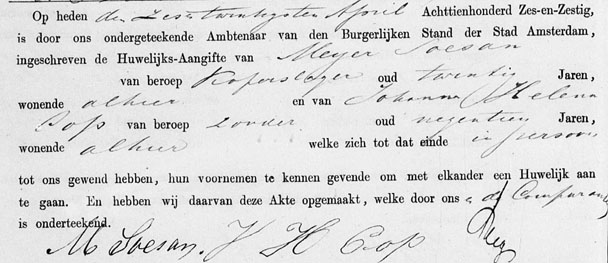 Op heden den Zesentwintigsten April Achttienhonderd Zes-en-Zestig,
is door ons ondergeteekende Ambtenaar van den Burgerlijken Stand der Stad Amsterdam,
ingeschreven de Huwelijks-Aangifte van Meyer Soesan
van beroep Koperslager oud twintig Jaren,
wonende alhier en van Johanna Helena
Cop van beroep zonder oud negentien Jaren,
wonende alhier welke zich tot dat einde in persoon
tot ons gewend hebben, hun voornemen te kennen gevende om met elkander een Huwelijk aan
te gaan. En hebben wij daarvan deze Akte opgemaakt, welke door ons
is onderteekend.
M Soesan. J H Cop